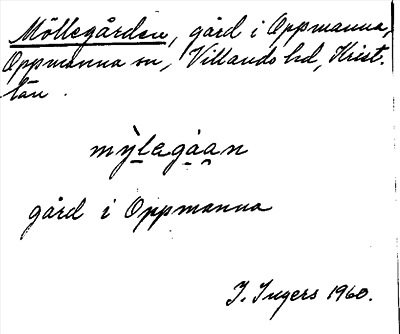 Möllegården, gård i Oppmanna,
Oppmanna sn, Villands hd, Krist.
län.
mỳlegåan
gård i Oppmanna
I. Ingers 1960.